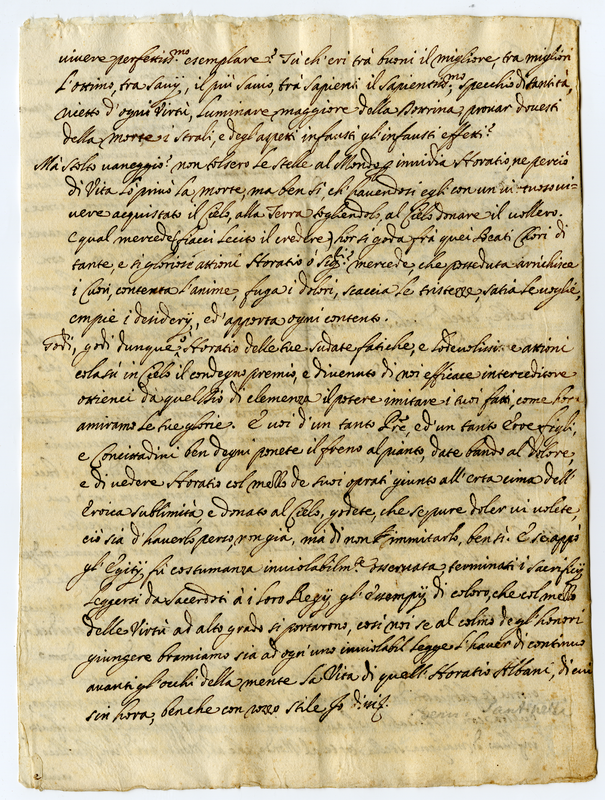 vivere perfettiss.mo esemplare? Tù ch'eri trà buoni il migliore, tra migliori
l'ottimo, tra Savij, il più Savio, trà Sapienti il Sapientiss.mo, specchio di santità,
d'ogni Virtù, luminare maggiore della Dottrina, provar dovesti
della morte i strali, e degl'aspetti infausti gl'infausti effetti?
Mà stolto vaneggio: non tolsero le stelle al Mondo p invidia Horatio, ne perciò
di Vita lo privò la morte, ma ben si ch'havendosi egli con un virtuoso vi-
vere acquistato il Cielo, alla Terra togliendolo, al Cielo donare il vollero.
E qual mercede (siaci lecito il credere) hor si goda frà quei Beati Chori di
tante, e si gloriose attioni Horatio ò mercede, che posseduta arrichisce
i Cuori, contenta l'anime, fuga i dolori, scaccia le tristezze, satia le voglie,
empie i desiderij, ed'apporta ogni contento.
Godi, godi dunque ò Horatio delle tue sudate fatiche, e lodevoliss.e attioni
colasù in Cielo il condegno premio, e divenuto di noi efficace intercessore
ottienci da quell'Dio di clemenza il potere imitare i tuoi fatti, come hor
amiramo le tue glorie. E voi d'un tanto Pre, ed'un tanto Eroe figli,
e Concittadini ben degni ponete il freno al pianto, date bando al dolore
e di vedere Horatio col mezzo de suoi oprati giunto all'erta cima dell'
Eroica sublimità e donato al Cielo, godete, che se pure doler vi volete,
ciò sia d'haverlo perso, non già, mà di non immitarlo, bensì. E se appò
gl'Egitij fù costumanza inviolabilm.te osservata, terminati i Sacrificij
leggersi da Sacerdoti à i loro Regij gl'esempij di coloro, che col mezzo
delle Virtù ad alto grado si portarono, così noi se al colmo degl'honori
giungere bramiamo sia ad ogn'uno inviolabil legge l'haver di continuo
avanti gl'occhi della mente la Vita di quell'Horatio Albani, di cui
sin hora, benche con rozzo stile Io dissi.